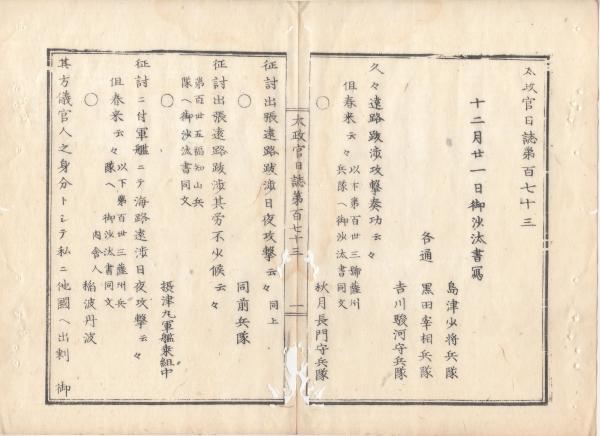 太政官日誌第百七十三
十二月廿一日御沙汰書寫
島津少將兵隊
各通 黒田宰相兵隊
吉川駿河守兵隊
久々遠路跋渉攻撃奏功云々
但春来云々以下第百廿三號薩州
兵隊ヘ御沙汰書同文
○ 秋月長門守兵隊
太政官日誌第百七十三 一
征討出張遠路跋渉日夜攻撃云々 同上
○ 同前兵隊
征討出張遠路跋渉其労不少候云々
第百廿五福知山兵
隊ヘ御沙汰書同文
○ 摂津丸軍艦乗組中
征討ニ付軍艦ニテ海路遠渉日夜攻撃云々
但春来云々以下第百廿三薩州兵
隊ヘ御沙汰書同文
○ 内舎人 稲波丹波
其方儀官人之身分トシテ私ニ他國ヘ出剰 御